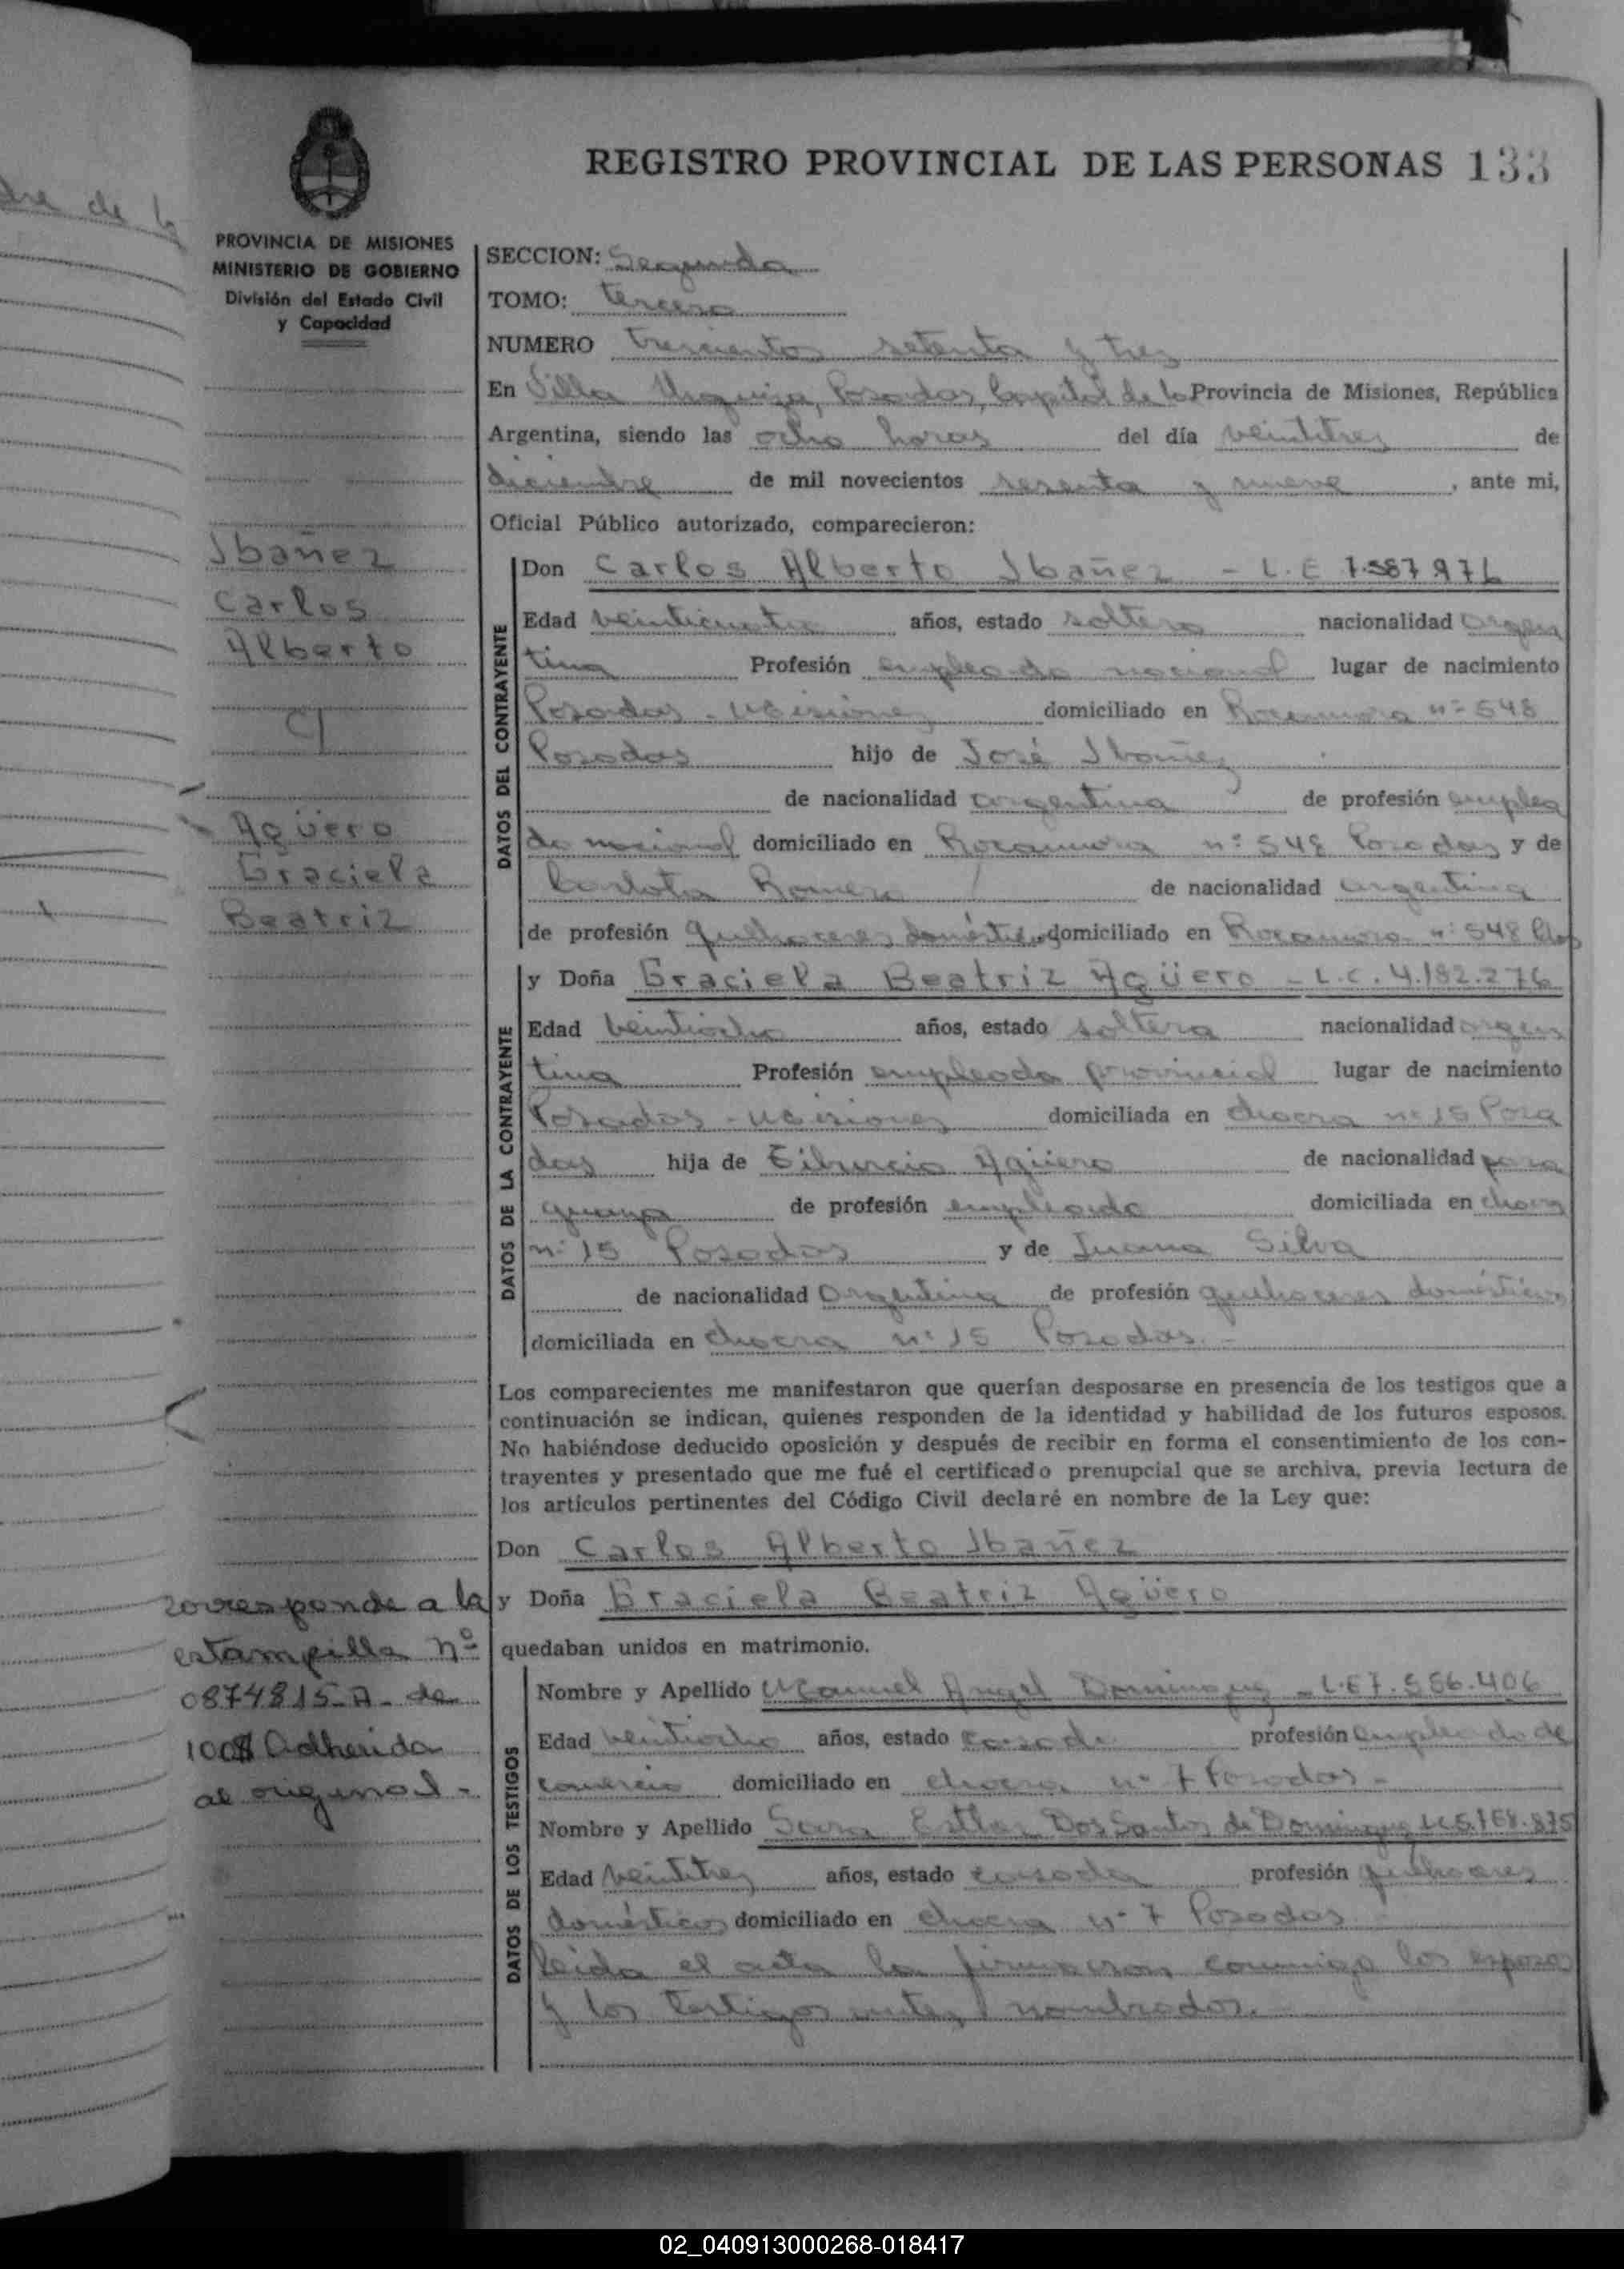 dre de la
REGISTRO PROVINCIAL DE LAS PERSONAS 133
PROVINCIA DE MISIONES
MINISTERIO DE GOBIERNO
División del Estado Civil
y Capacidad
Ibañez
Carlos
Alberto
C/
Agüero
Graciela
Beatriz
corresponde a la
estampilla nº
0874815-A- de
100$ Adherida
al original -
SECCION: Segunda
TOMO: tercero
NUMERO trescientos setenta y tres
En Villa Urquiza, Posadas, Capital de la Provincia de Misiones, República
Argentina, siendo las ocho horas del día veintitres de
diciembre de mil novecientos sesenta y nueve, ante mi,
Oficial Público autorizado, comparecieron:
DATOS DEL CONTRAYENTE
Don Carlos Alberto Ibañez - L.E 7.587.976
Edad veinticuatro años, estado soltero nacionalidad argen
tina Profesión empleado nacional lugar de nacimiento
Posadas - Misiones domiciliado en Rocamora nº 548
Posadas hijo de José Ibañez
de nacionalidad argentina de profesión emplea
do nacional domiciliado en Rocamora nº 548 Posadas y de
Carlota Romero de nacionalidad argentina
de profesión quehaceres domésticos domiciliado en Rocamora nº 548 Pdas
DATOS DE LA CONTRAYENTE
y Doña Graciela Beatriz Agüero - L.C. 4.182.276
Edad veintiocho años, estado soltera nacionalidad argen
tina Profesión empleada provincial lugar de nacimiento
Posadas - Misiones domiciliada en chacra nº 15 Posa
das hija de Tiburcio Agüero de nacionalidad para
guaya de profesión empleado domiciliada en chacra
nº 15 Posadas y de Juana Silva
de nacionalidad Argentina de profesión quehaceres domésticos
domiciliada en chacra nº 15 Posadas. -
Los comparecientes me manifestaron que querían desposarse en presencia de los testigos que a
continuación se indican, quienes responden de la identidad y habilidad de los futuros esposos.
No habiéndose deducido oposición y después de recibir en forma el consentimiento de los con-
trayentes y presentado que me fué el certificado prenupcial que se archiva, previa lectura de
los artículos pertinentes del Código Civil declaré en nombre de la Ley que:
Don Carlos Alberto Ibañez
y Doña Graciela Beatriz Agüero
quedaban unidos en matrimonio.
DATOS DE LOS TESTIGOS
Nombre y Apellido Manuel Angel Dominguez - L.E 7.556.406
Edad veintiocho años, estado casado profesión empleado de
comercio domiciliado en chacra nº 7 Posadas -
Nombre y Apellido Sara Esther Dos Santos de Dominguez LC 5.168.875
Edad veintitres años, estado casada profesión quehaceres
domésticos domiciliado en chacra nº 7 Posadas
leída el acta la firmaron conmigo los esposos
y los testigos antes nombrados.
02_040913000268-018417